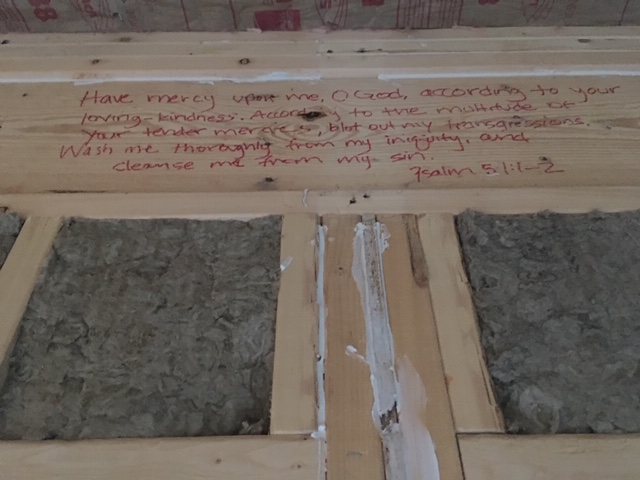 Have mercy upon me, O God, according to your
loving-kindness. According to the multitude of
your tender mercies, blot out my transgressions.
Wash me thoroughly from my iniquity, and
cleanse me from my sin.
Psalm 51:1-2